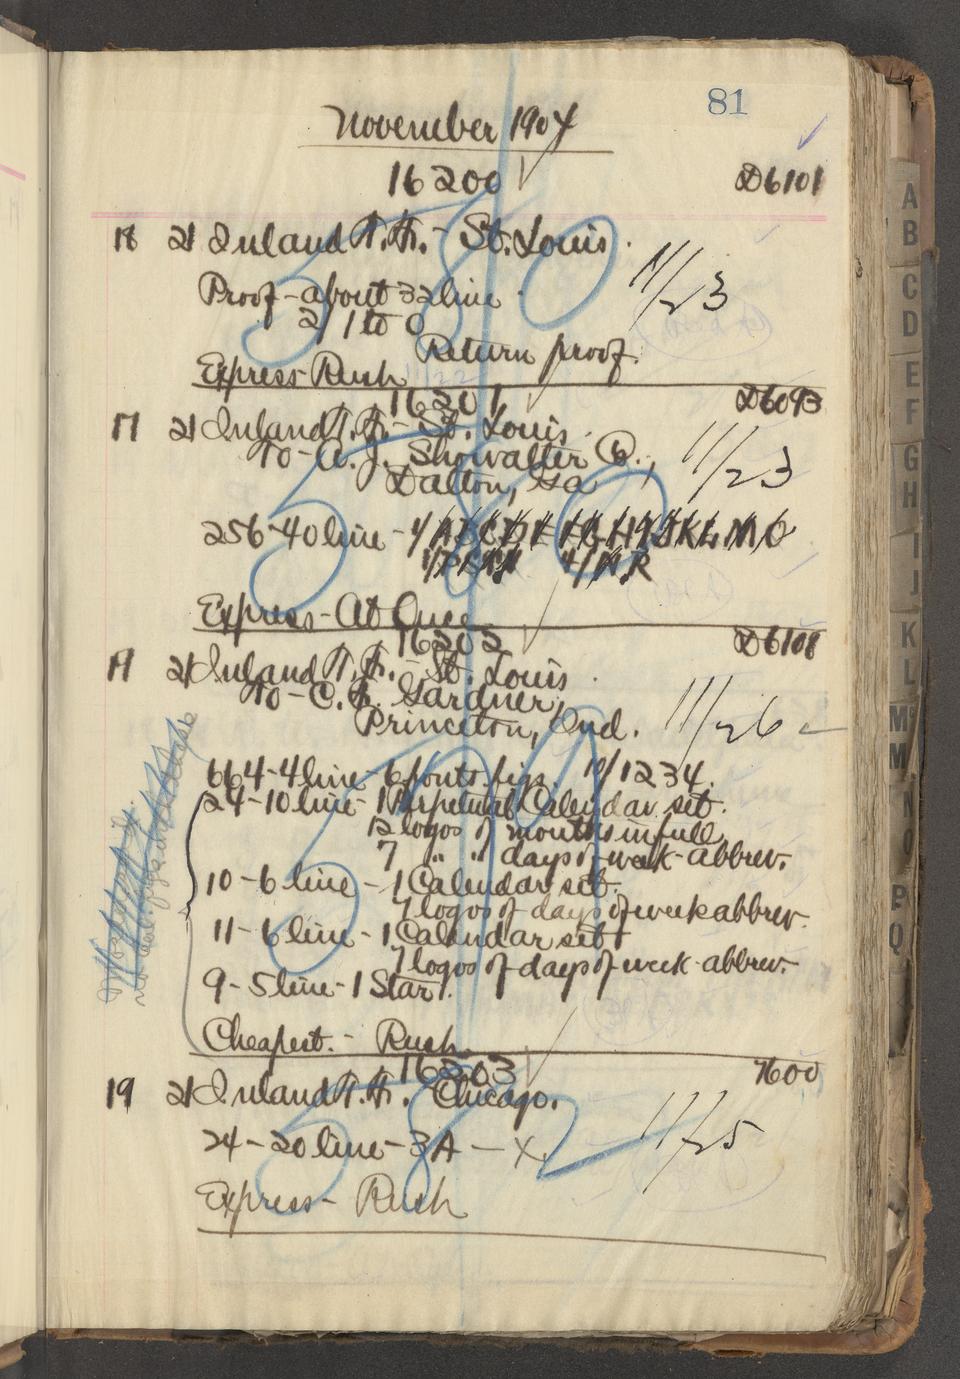 81
November 1904
16200 D6101
18 21 Inland T. F. - St. Louis.
Proof - about 32 line
2/1 to 0
Return proof.
Express - Rush 11/23
580
16201 D6093
17 21 Inland T. F. - St. Louis
To - A. J. Showalter Co.,
Dalton, Ga 11/23
256-40 line - 4/A B C D E F G H I J K L M O
4/N R
Express - At Once
580
16202 D6108
19 21 Inland T. F. - St. Louis
To - C. F. Gardner,
Princeton, Ind. 11/26
664-4 line - 6 fonts figs. 10/1234.
24-10 line - 1 Perpetual Calendar set.
12 logos of months in full
7 " " days of week - abbrev.
10-6 line - 1 Calendar set.
7 logos of days of week abbrev.
11-6 line - 1 Calendar set
7 logos of days of week - abbrev.
9-5 line - 1 Star.
Cheapest. - Rush
16203 7600
19 21 Inland T. F. Chicago.
24-20 line - 3A - X. 11/25
Express - Rush
582
A
B
C
D
E
F
G
H
I
J
K
L
M
M
N
O
P
Q